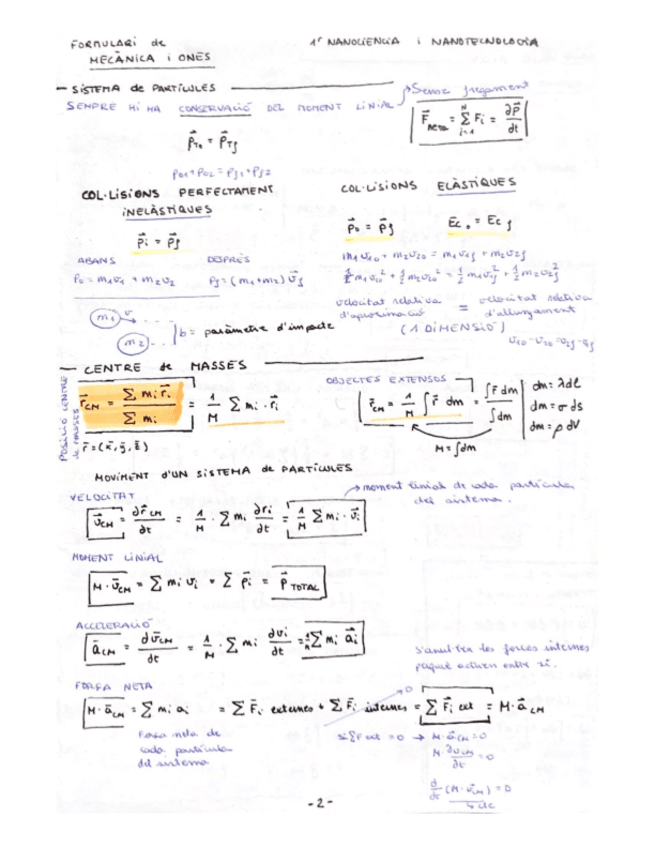 FORMULARI de MECÀNICA i ONES
1r NANOCIÈNCIA i NANOTECNOLOGIA
SISTEMA de PARTÍCULES
SEMPRE HI HA CONSERVACIÓ DEL MOMENT LINIAL
Sense fregament
F⃗neta = Σ Fi = ∂p⃗/∂t
N
i=1
p⃗To = p⃗Tf
po1 + po2 = pf1 + pf2
COL·LISIONS PERFECTAMENT INELÀSTIQUES
p⃗i = p⃗f
ABANS
DESPRÉS
Po = m1v1 + m2v2
Pf = (m1+m2) v⃗f
COL·LISIONS ELÀSTIQUES
p⃗o = p⃗f
Eco = Ecf
m1v1o + m2v2o = m1v1f + m2v2f
½ m1v1o² + ½ m2v2o² = ½ m1v1f² + ½ m2v2f²
velocitat relativa d'aproximació = velocitat relativa d'allunyament
(1 DIMENSIÓ)
v1o - v2o = v2f - v1f
m1
v
m2
b = paràmetre d'impacte
CENTRE de MASSES
POSICIÓ CENTRE de MASSES
r⃗CM = Σ mi r⃗i / Σ mi = 1/M Σ mi · r⃗i
r⃗ = (x⃗, y⃗, z⃗)
OBJECTES EXTENSOS
r⃗CM = 1/M ∫ r⃗ dm = ∫ r⃗ dm / ∫ dm
dm = λdl
dm = σ ds
dm = ρ dV
M = ∫dm
MOVIMENT D'UN SISTEMA de PARTÍCULES
VELOCITAT
moment linial de cada partícula del sistema.
v⃗CM = ∂r⃗CM/∂t = 1/M · Σ mi ∂ri/∂t = 1/M Σ mi · v⃗i
MOMENT LINIAL
M · v⃗CM = Σ mi vi = Σ p⃗i = P⃗TOTAL
ACCELERACIÓ
a⃗CM = dv⃗CM/dt = 1/M · Σ mi dvi/dt = 1/M Σ mi a⃗i
S'anul·len les forces internes perquè actuen entre sí.
FORÇA NETA
0
M · a⃗CM = Σ mi ai = Σ F⃗i externes + Σ F⃗i internes = Σ F⃗i ext = M · a⃗CM
Força neta de cada partícula del sistema
si ΣF ext = 0 → M · a⃗CM = 0
M · ∂vCM/∂t = 0
d/dt (M · v⃗CM) = 0
cte
-2-